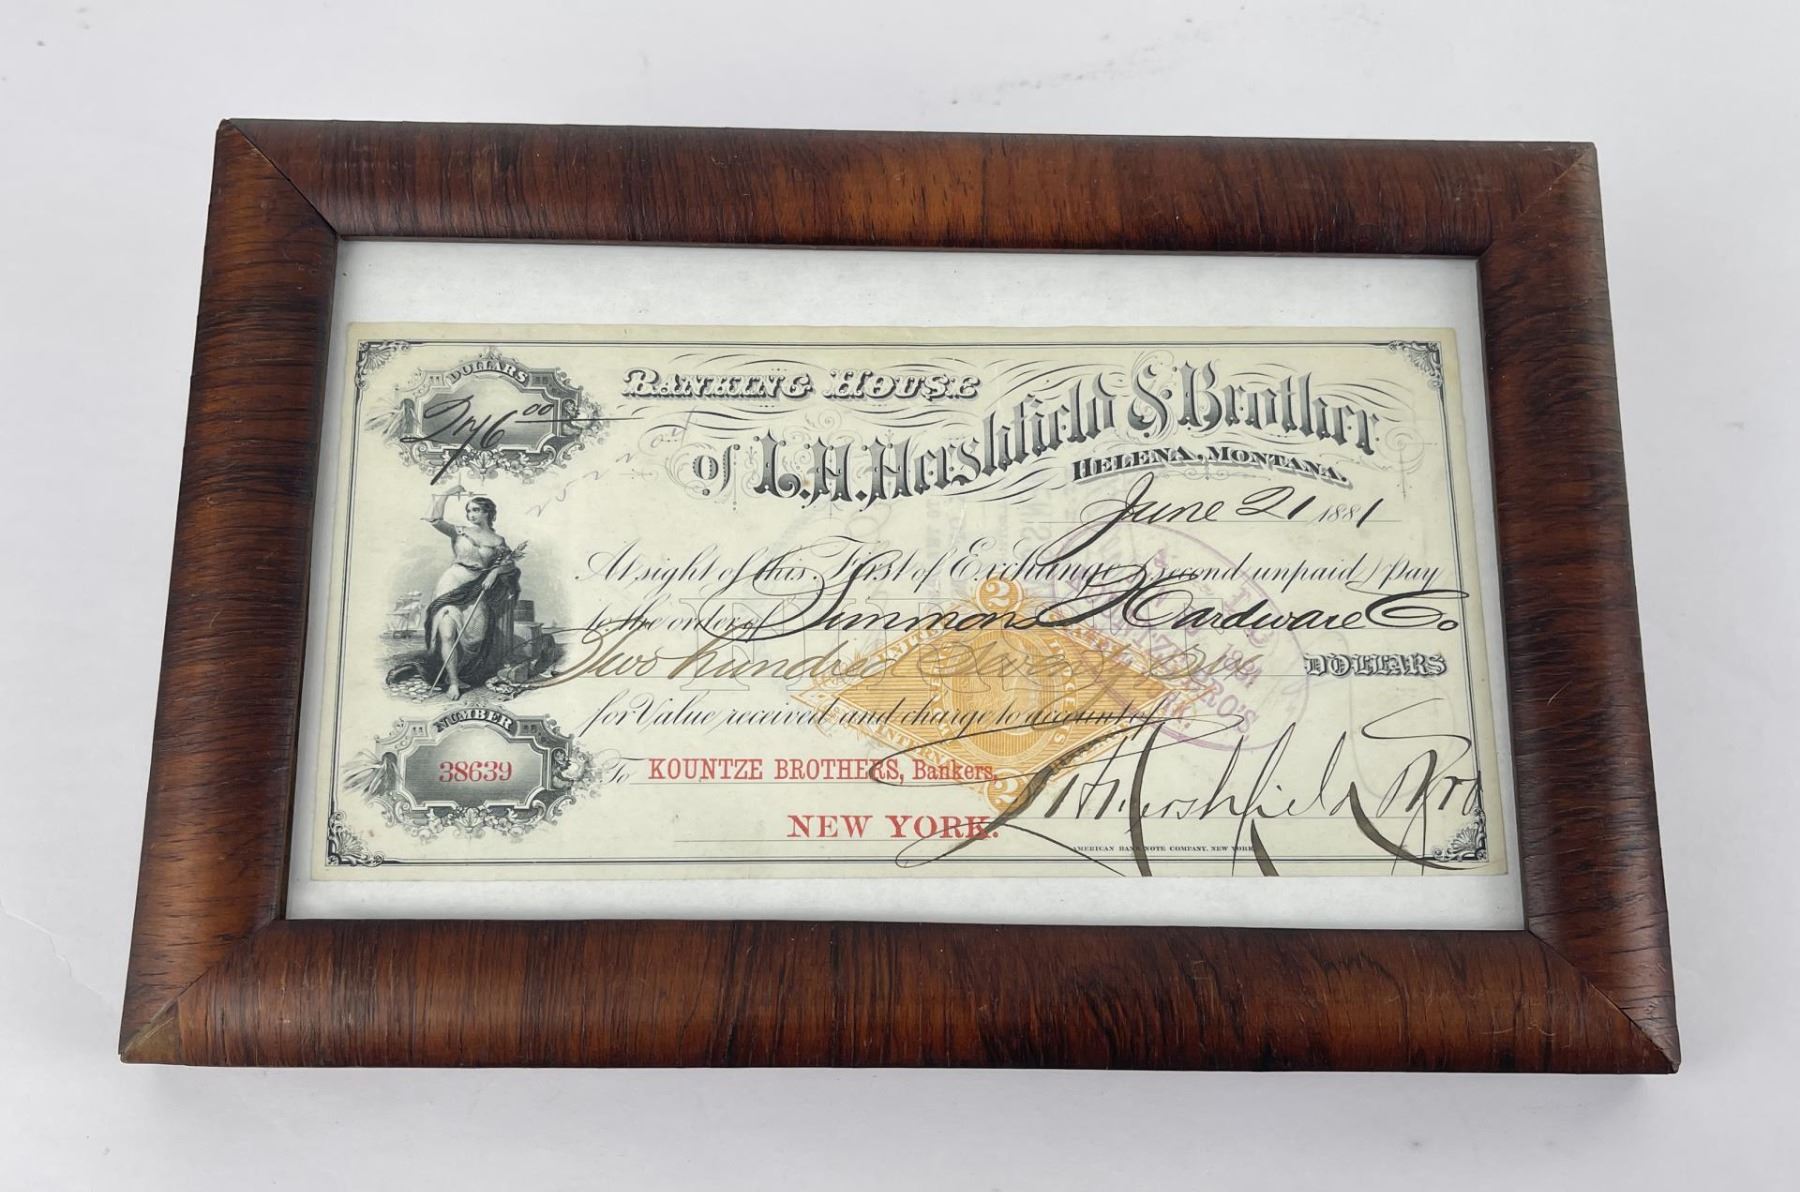 DOLLARS
276 00
BANKING HOUSE
of L.H. Hershfield & Brother
HELENA, MONTANA.
June 21 1881
At sight of this First of Exchange (second unpaid) pay
to the order of Simmons Hardware Co
Two hundred Seventy Six DOLLARS
for Value received and charge to account of
NUMBER
38639
To KOUNTZE BROTHERS, Bankers,
NEW YORK.
L H Hershfield & Bro
AMERICAN BANK NOTE COMPANY, NEW YORK